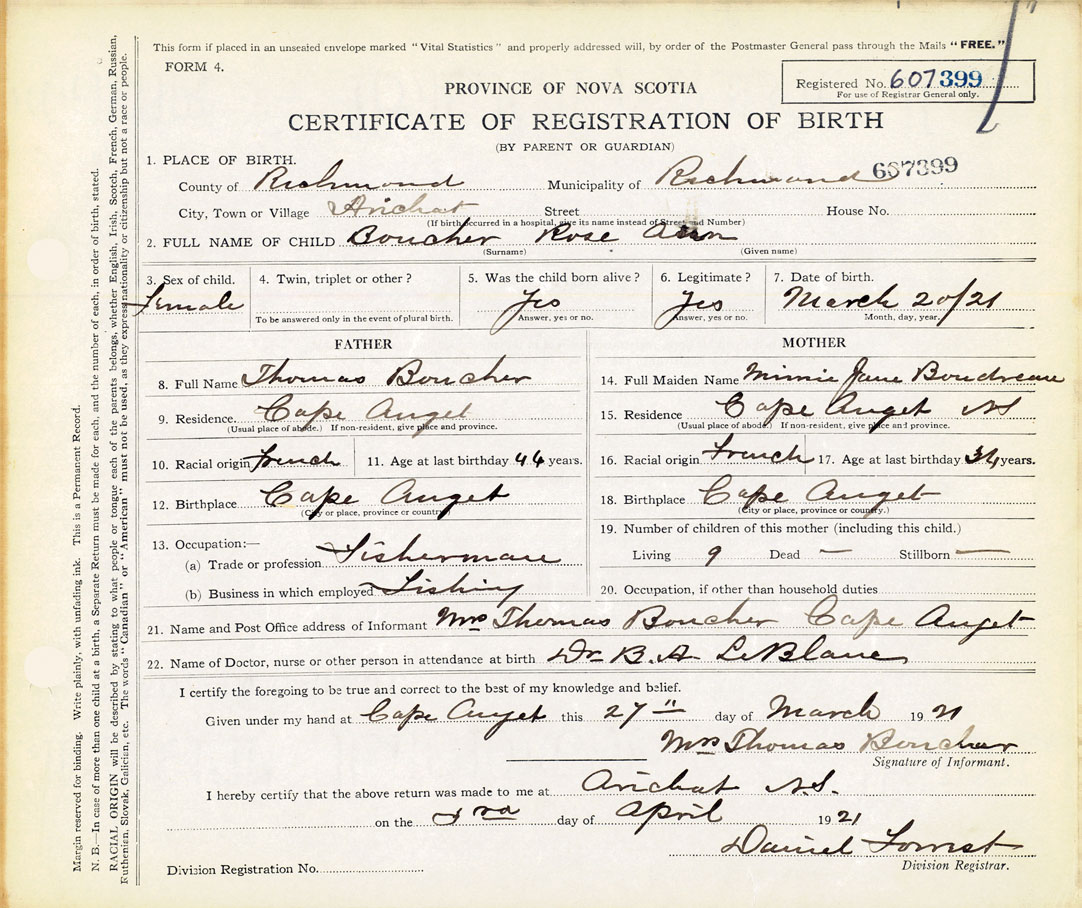 This form if placed in an unsealed envelope marked "Vital Statistics" and properly addressed will, by order of the Postmaster General pass through the Mails "FREE."
FORM 4.
Registered No. 607399
For use of Registrar General only.
PROVINCE OF NOVA SCOTIA
CERTIFICATE OF REGISTRATION OF BIRTH
(BY PARENT OR GUARDIAN)
667399
1. PLACE OF BIRTH.
County of Richmond Municipality of Richmond
City, Town or Village Arichat Street House No.
(If birth occurred in a hospital, give its name instead of Street and Number)
2. FULL NAME OF CHILD Boucher Rose Ann
(Surname) (Given name)
3. Sex of child. 4. Twin, triplet or other? 5. Was the child born alive? 6. Legitimate? 7. Date of birth.
Female Yes Yes March 20/21
To be answered only in the event of plural birth. Answer, yes or no. Answer, yes or no. Month, day, year.
FATHER
8. Full Name Thomas Boucher
9. Residence. Cape Auget
(Usual place of abode.) If non-resident, give place and province.
10. Racial origin French 11. Age at last birthday 44 years.
12. Birthplace Cape Auget
(City or place, province or country)
13. Occupation:—
(a) Trade or profession Fisherman
(b) Business in which employed Fishing
MOTHER
14. Full Maiden Name Minnie Jane Boudreau
15. Residence Cape Auget NS
(Usual place of abode.) If non-resident, give place and province.
16. Racial origin French 17. Age at last birthday 34 years.
18. Birthplace Cape Auget
(City or place, province or country.)
19. Number of children of this mother (including this child.)
Living 9 Dead — Stillborn —
20. Occupation, if other than household duties
21. Name and Post Office address of Informant Mrs Thomas Boucher Cape Auget
22. Name of Doctor, nurse or other person in attendance at birth Dr B. A. LeBlanc
I certify the foregoing to be true and correct to the best of my knowledge and belief.
Given under my hand at Cape Auget this 27" day of March 1921
Mrs Thomas Boucher
Signature of Informant.
I hereby certify that the above return was made to me at Arichat N.S.
on the 3rd day of April 1921
Daniel Forrest
Division Registrar.
Division Registration No.
Margin reserved for binding. Write plainly, with unfading ink. This is a Permanent Record.
N. B.—In case of more than one child at a birth, a Separate Return must be made for each, and the number of each, in order of birth, stated.
RACIAL ORIGIN will be described by stating to what people or tongue each of the parents belongs, whether English, Irish, Scotch, French, German, Russian,
Ruthenian, Slovak, Galician, etc. The words "Canadian" or "American" must not be used, as they express nationality or citizenship but not a race or people.